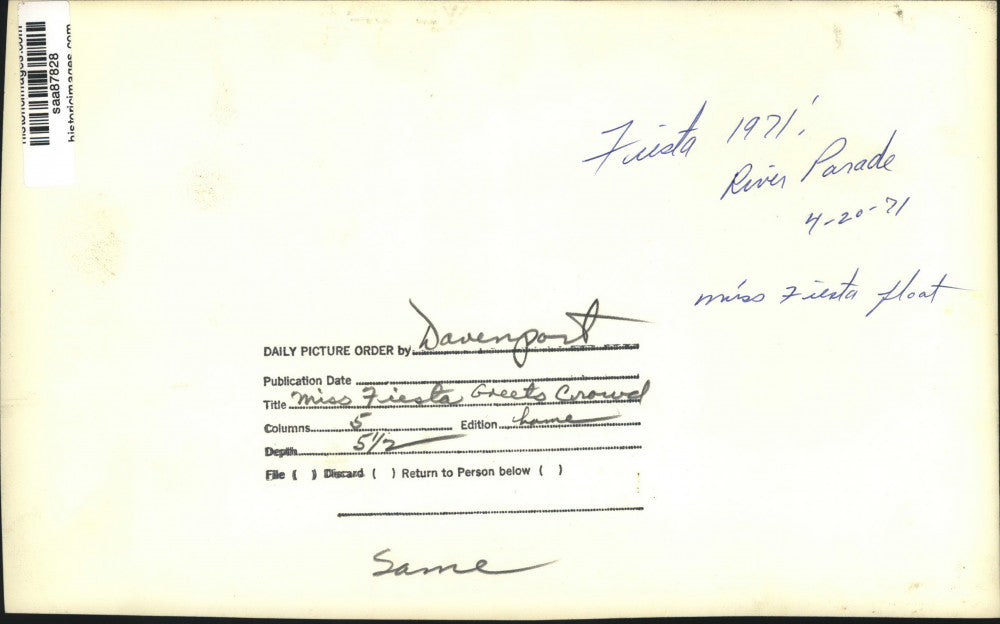 historicimages.com
saa87828
historicimages.com
Fiesta 1971!
River Parade
4-20-71
miss Fiesta float
DAILY PICTURE ORDER by Davenport
Publication Date
Title Miss Fiesta Greets Crowd
Columns 5 Edition home
Depth 5 1/2
File ( ) Discard ( ) Return to Person below ( )
Same